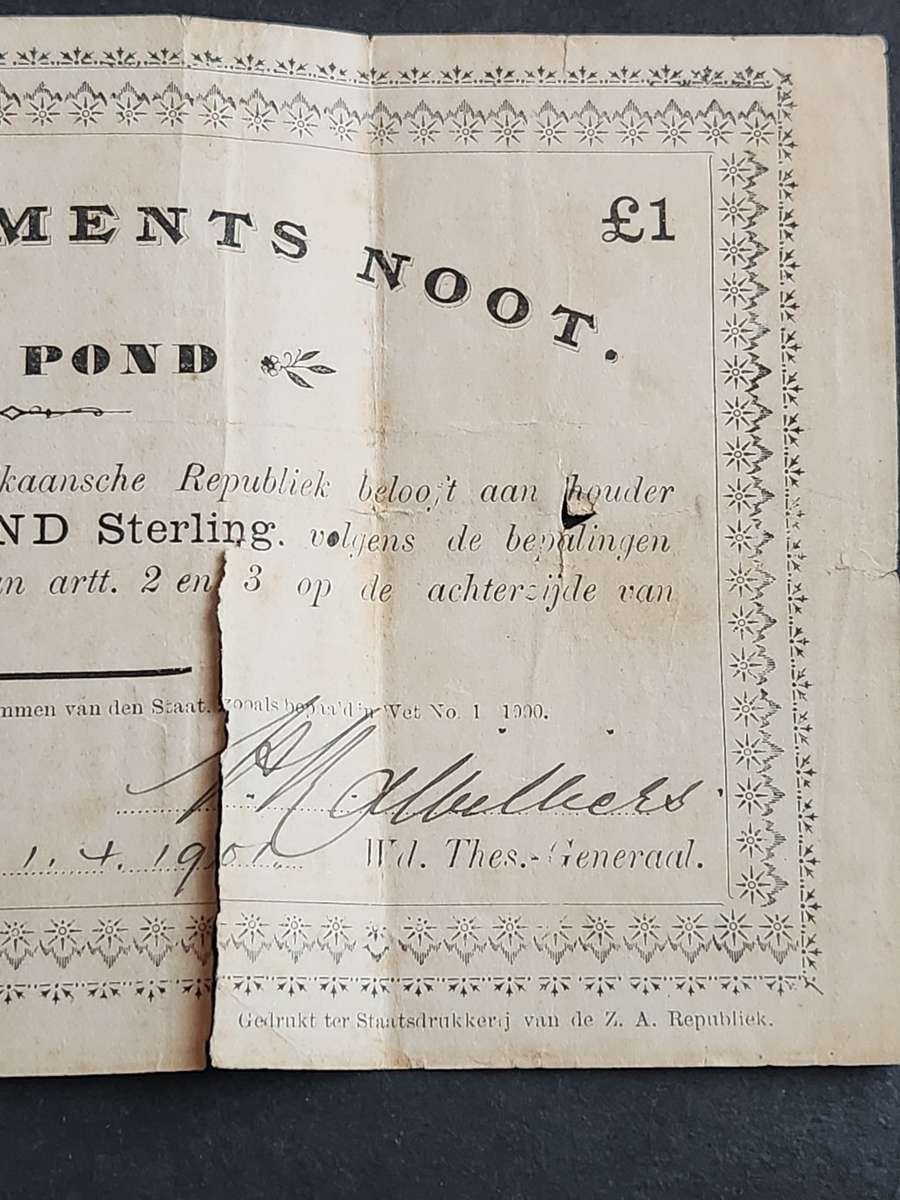 MENTS NOOT.
£1
POND
kaansche Republiek belooft aan houder
ND Sterling. volgens de bepalingen
an artt. 2 en 3 op de achterzijde van
mmen van den Staat. zooals bepaald in Wet No. 1 1900.
1.4.1901.
Wd. Thes.-Generaal.
Gedrukt ter Staatsdrukkerij van de Z. A. Republiek.